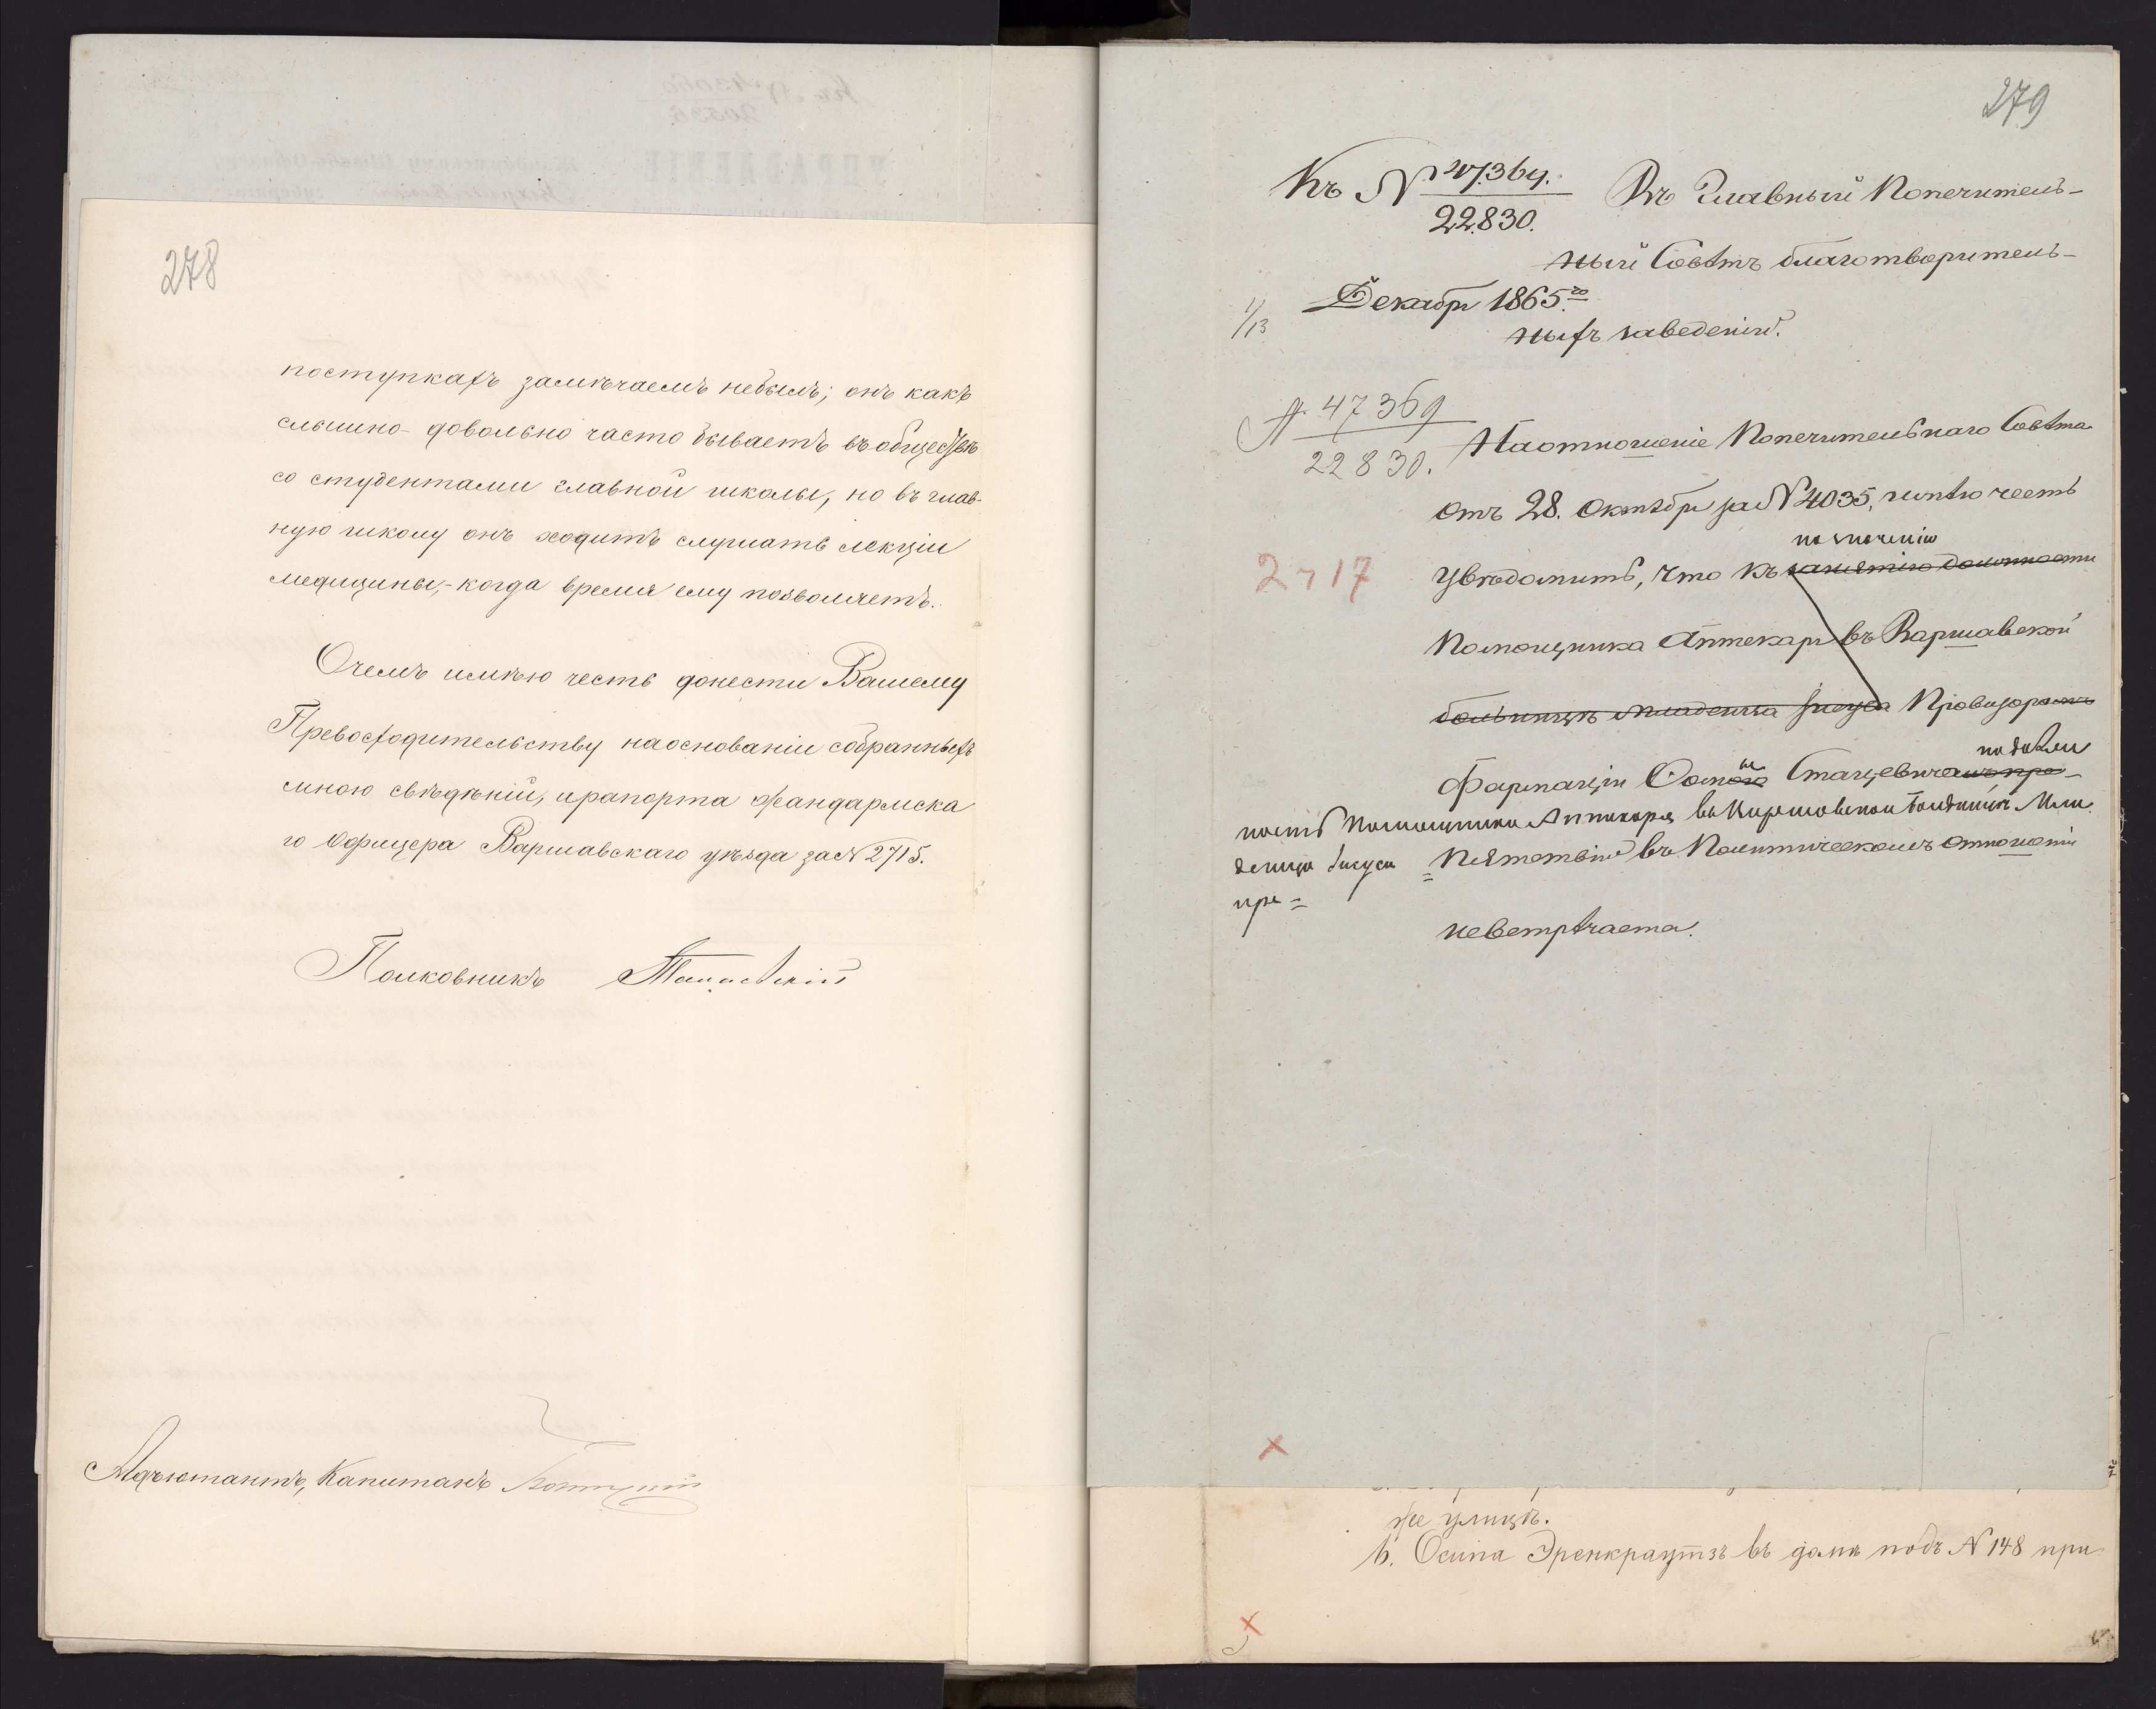 278
поступкахъ замѣчаемъ небылъ; онъ какъ
слышно - довольно часто бываетъ въ обществѣ
со студентами главной школы, но въ глав-
ную школу онъ ходитъ слушать лекціи
медицины, - когда время ему позволяетъ.
Очемъ имѣю честь донести Вашему
Превосходительству наоснованіи собранныхъ
мною свѣдѣній, ирапорта жандармска
го Офицера Варшавскаго уѣзда за № 2715.
Полковникъ
Адъютантъ, Капитанъ
279
Къ № 47.369.
22.830.
Въ Главный Попечитель-
ный Совѣтъ благотворитель-
ныхъ заведеній.
1/13 Декабря 1865 го
№ 47369
22830.
Наотношеніе Попечительнаго Совѣта
отъ 28. Октября за № 4035, имѣю честь
назначенію
2717
увѣдомить, что къ занятію должности
Помощника Аптекаря въ Варшавской
больницѣ Младенца Іисуса Провизоромъ
Фармаціи Стацевичемъ пре-
на должность Помощника Аптекаря въ Варшавской больницѣ Мла
денца Іисуса
пре=
=пятствій въ Политическомъ отношеніи
невстрѣчаетъ.
же улицѣ.
6. Осипа Эренкраутзъ въ домѣ подъ № 148 при